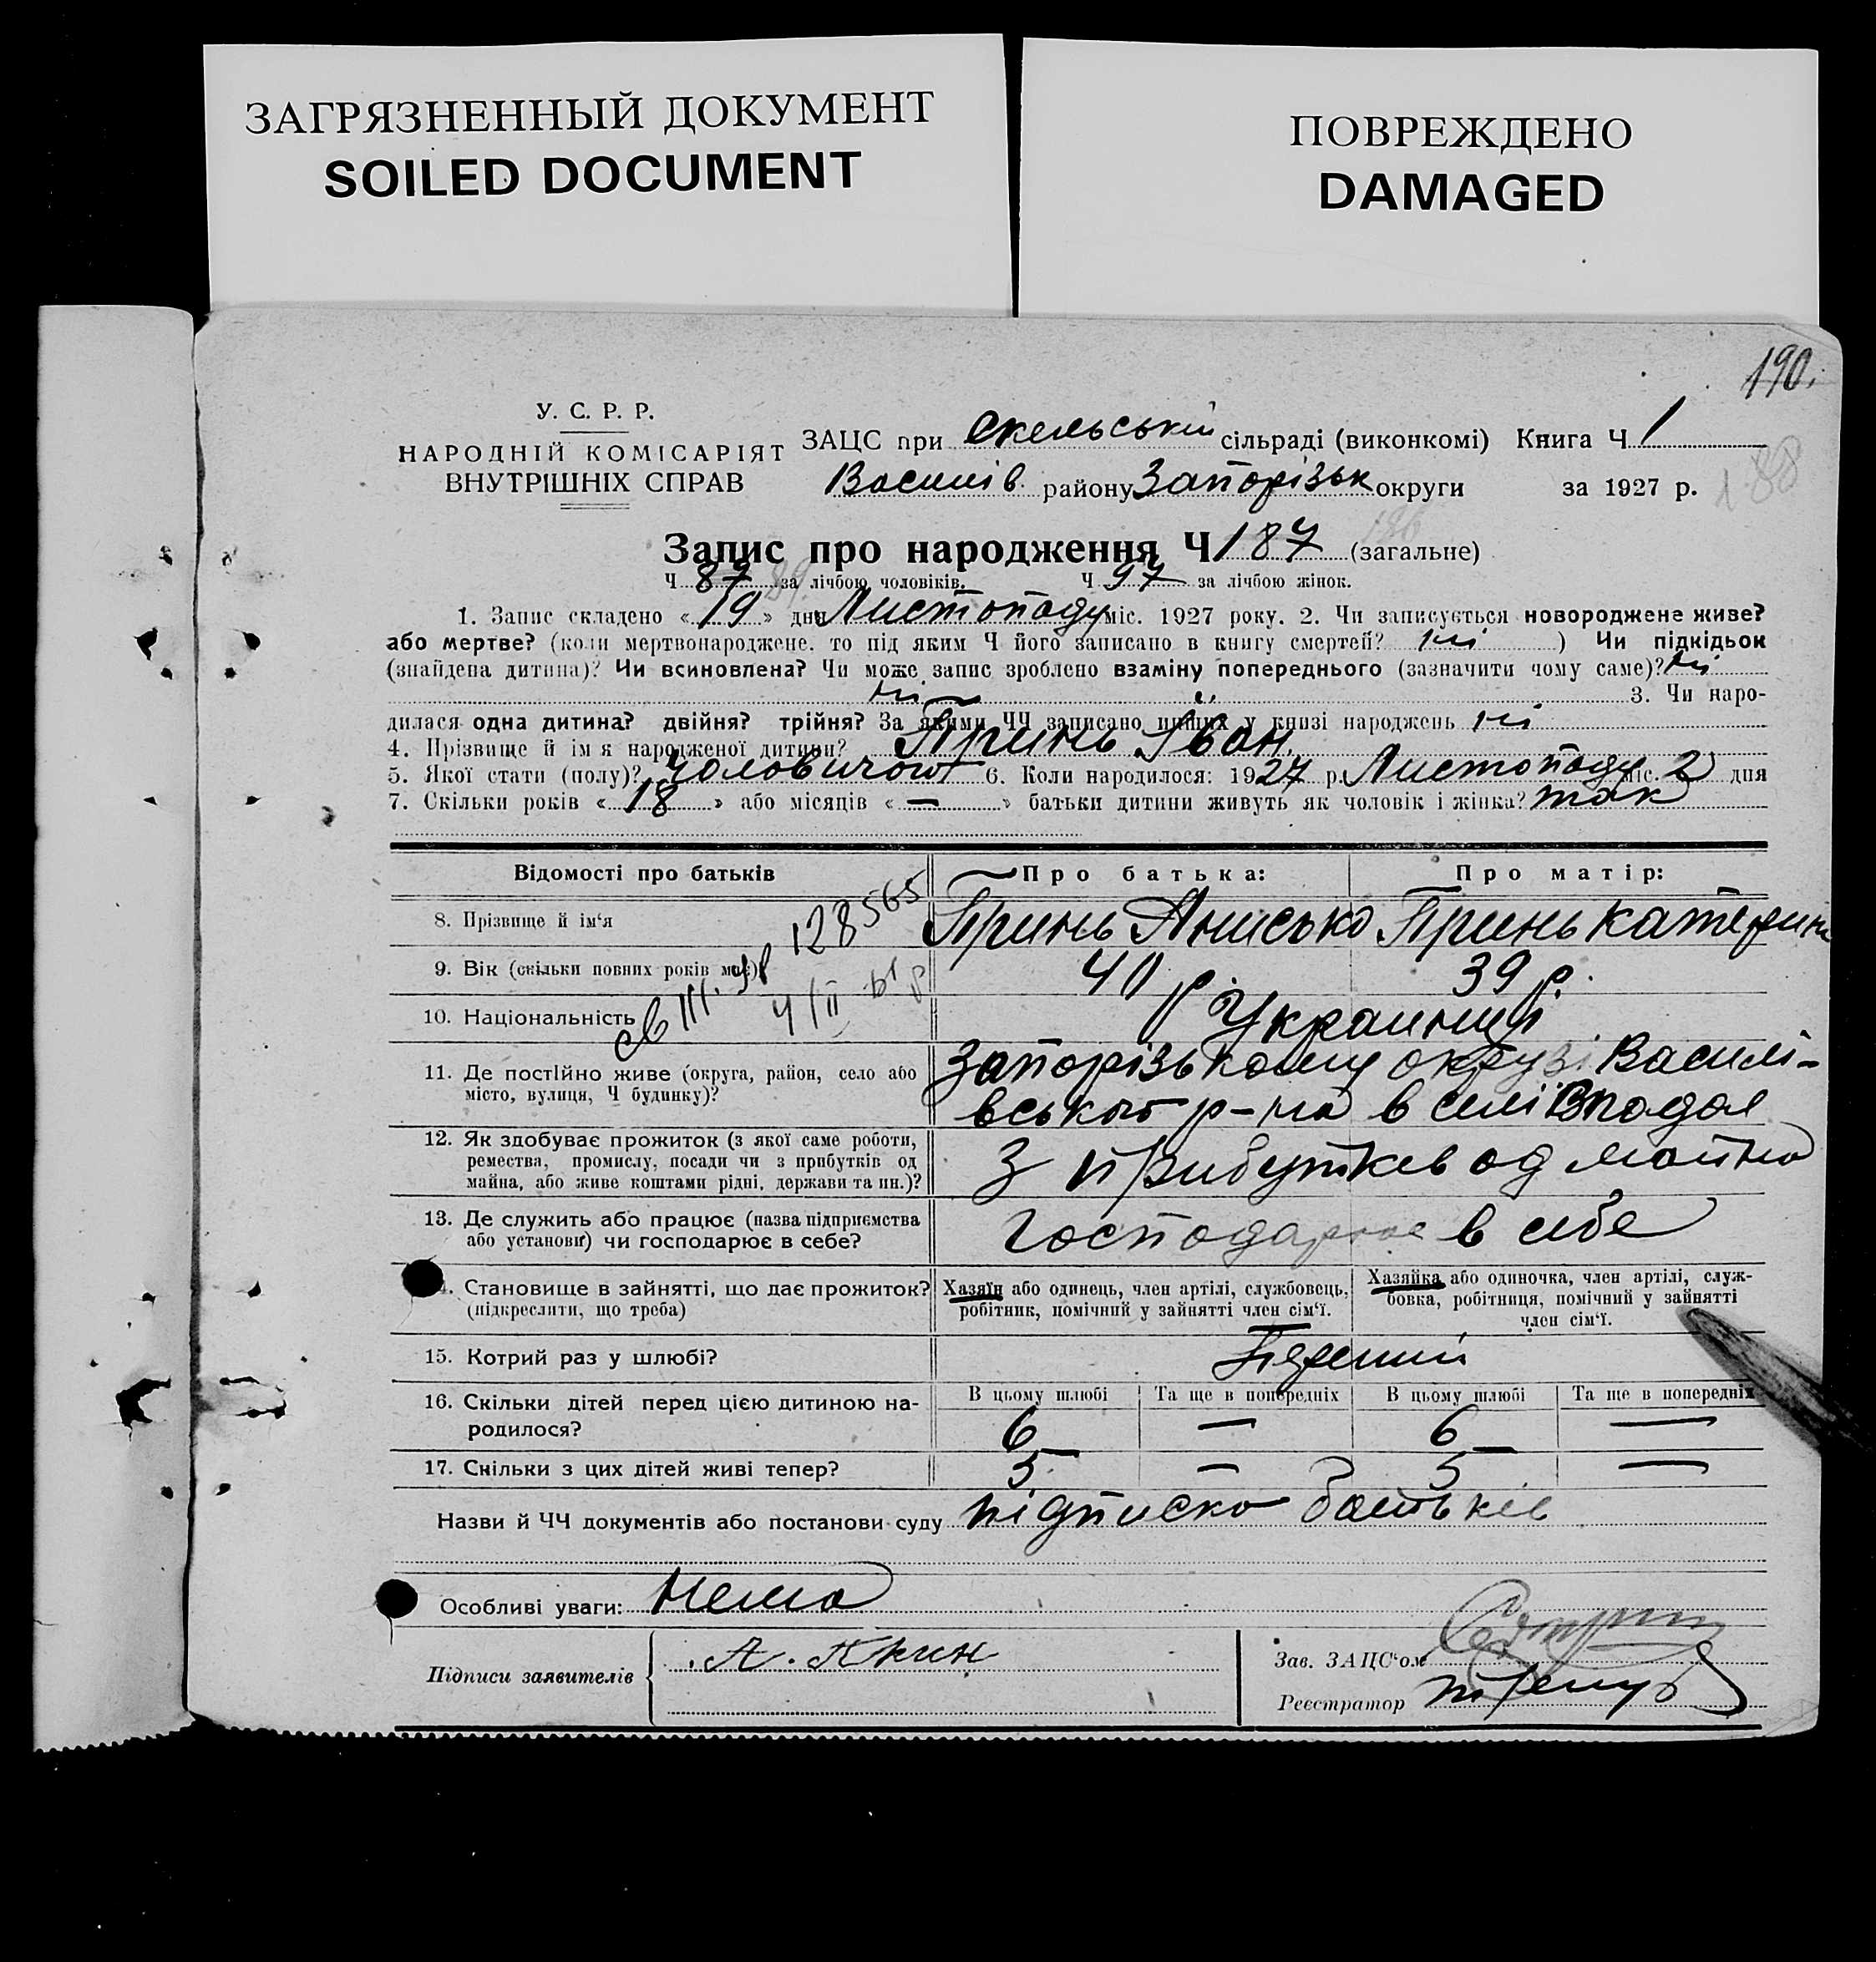 ЗАГРЯЗНЕННЫЙ ДОКУМЕНТ
SOILED DOCUMENT
ПОВРЕЖДЕНО
DAMAGED
190.
У. С. Р. Р.
НАРОДНІЙ КОМІСАРІЯТ
ВНУТРІШНІХ СПРАВ
ЗАЦС при Скельській сільраді (виконкомі) Книга Ч 1
Василів району Запорізьк округи за 1927 р. 188
Запис про народження Ч 187 186 (загальне)
Ч 87 89. за лічбою чоловіків. Ч 97 за лічбою жінок.
1. Запис складено « 19 » дня Листопаду міс. 1927 року. 2. Чи записується новороджене живе?
або мертве? (коли мертвонароджене. то під яким Ч його записано в книгу смертей? ні ) Чи підкідьок
(знайдена дитина)? Чи всиновлена? Чи може запис зроблено взаміну попереднього (зазначити чому саме)? ні
ні 3. Чи наро-
дилася одна дитина? двійня? трійня? За якими ЧЧ записано інших у книзі народжень ні
4. Прізвище й ім я народженої дитини? Принь Іван.
5. Якої стати (полу)? чоловічого 6. Коли народилося: 1927 р. Листопаду міс. 2 дня
7. Скільки років « 18 » або місяців « — » батьки дитини живуть як чоловік і жінка? так
Відомості про батьків
Про батька:
Про матір:
8. Прізвище й ім‘я
Принь Анисько
Принь Катерина
128565
9. Вік (скільки повних років має)?
40 р
39 р.
10. Національність
Украинці
11. Де постійно живе (округа, район, село або
місто, вулиця, Ч будинку)?
Запорізькому окрузі Василі-
вського р-на в селі Вподал
12. Як здобуває прожиток (з якої саме роботи,
ремества, промислу, посади чи з прибутків од
майна, або живе коштами рідні, держави та ин.)?
З прибутків од майна
13. Де служить або працює (назва підприємства
або установи) чи господарює в себе?
Господарює в себе
. Становище в зайнятті, що дає прожиток?
(підкреслити, що треба)
Хазяїн або одинець, член артілі, службовець,
робітник, помічний у зайнятті член сім‘ї.
Хазяйка або одиночка, член артілі, служ-
бовка, робітниця, помічний у зайнятті
член сім‘ї.
15. Котрий раз у шлюбі?
Перший
16. Скільки дітей перед цією дитиною на-
родилося?
В цьому шлюбі
Та ще в попередніх
В цьому шлюбі
Та ще в попередніх
6 — 6 —
17. Скільки з цих дітей живі тепер?
5 — 5 —
Назви й ЧЧ документів або постанови суду підписка батьків
Особливі уваги: Нема
Підписи заявителів
А. Прин
Зав. ЗАЦС‘ом
Реєстратор